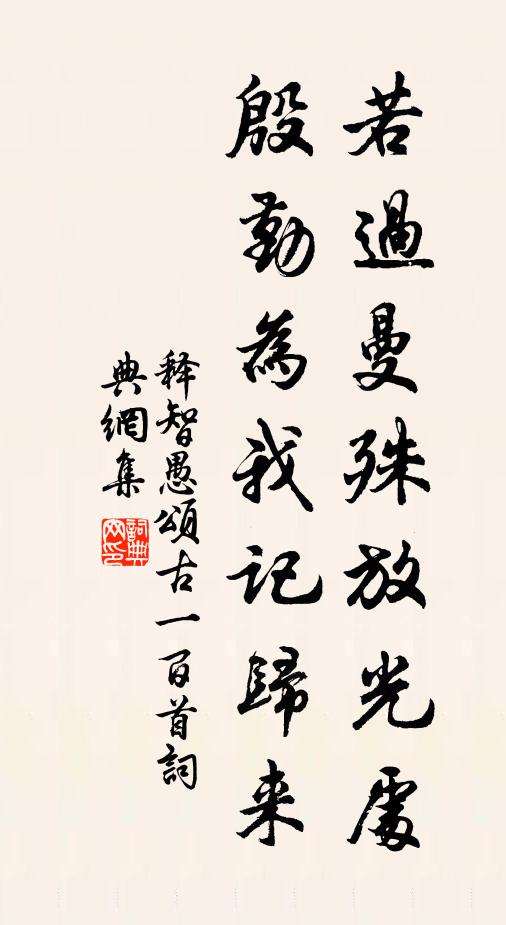 若過曼殊放光處
殷勤為我記歸来
释智愚頌古一百首詞
典網集
詞典
网印